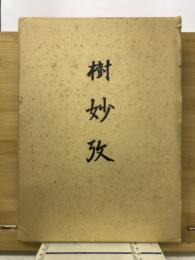 樹妙攷